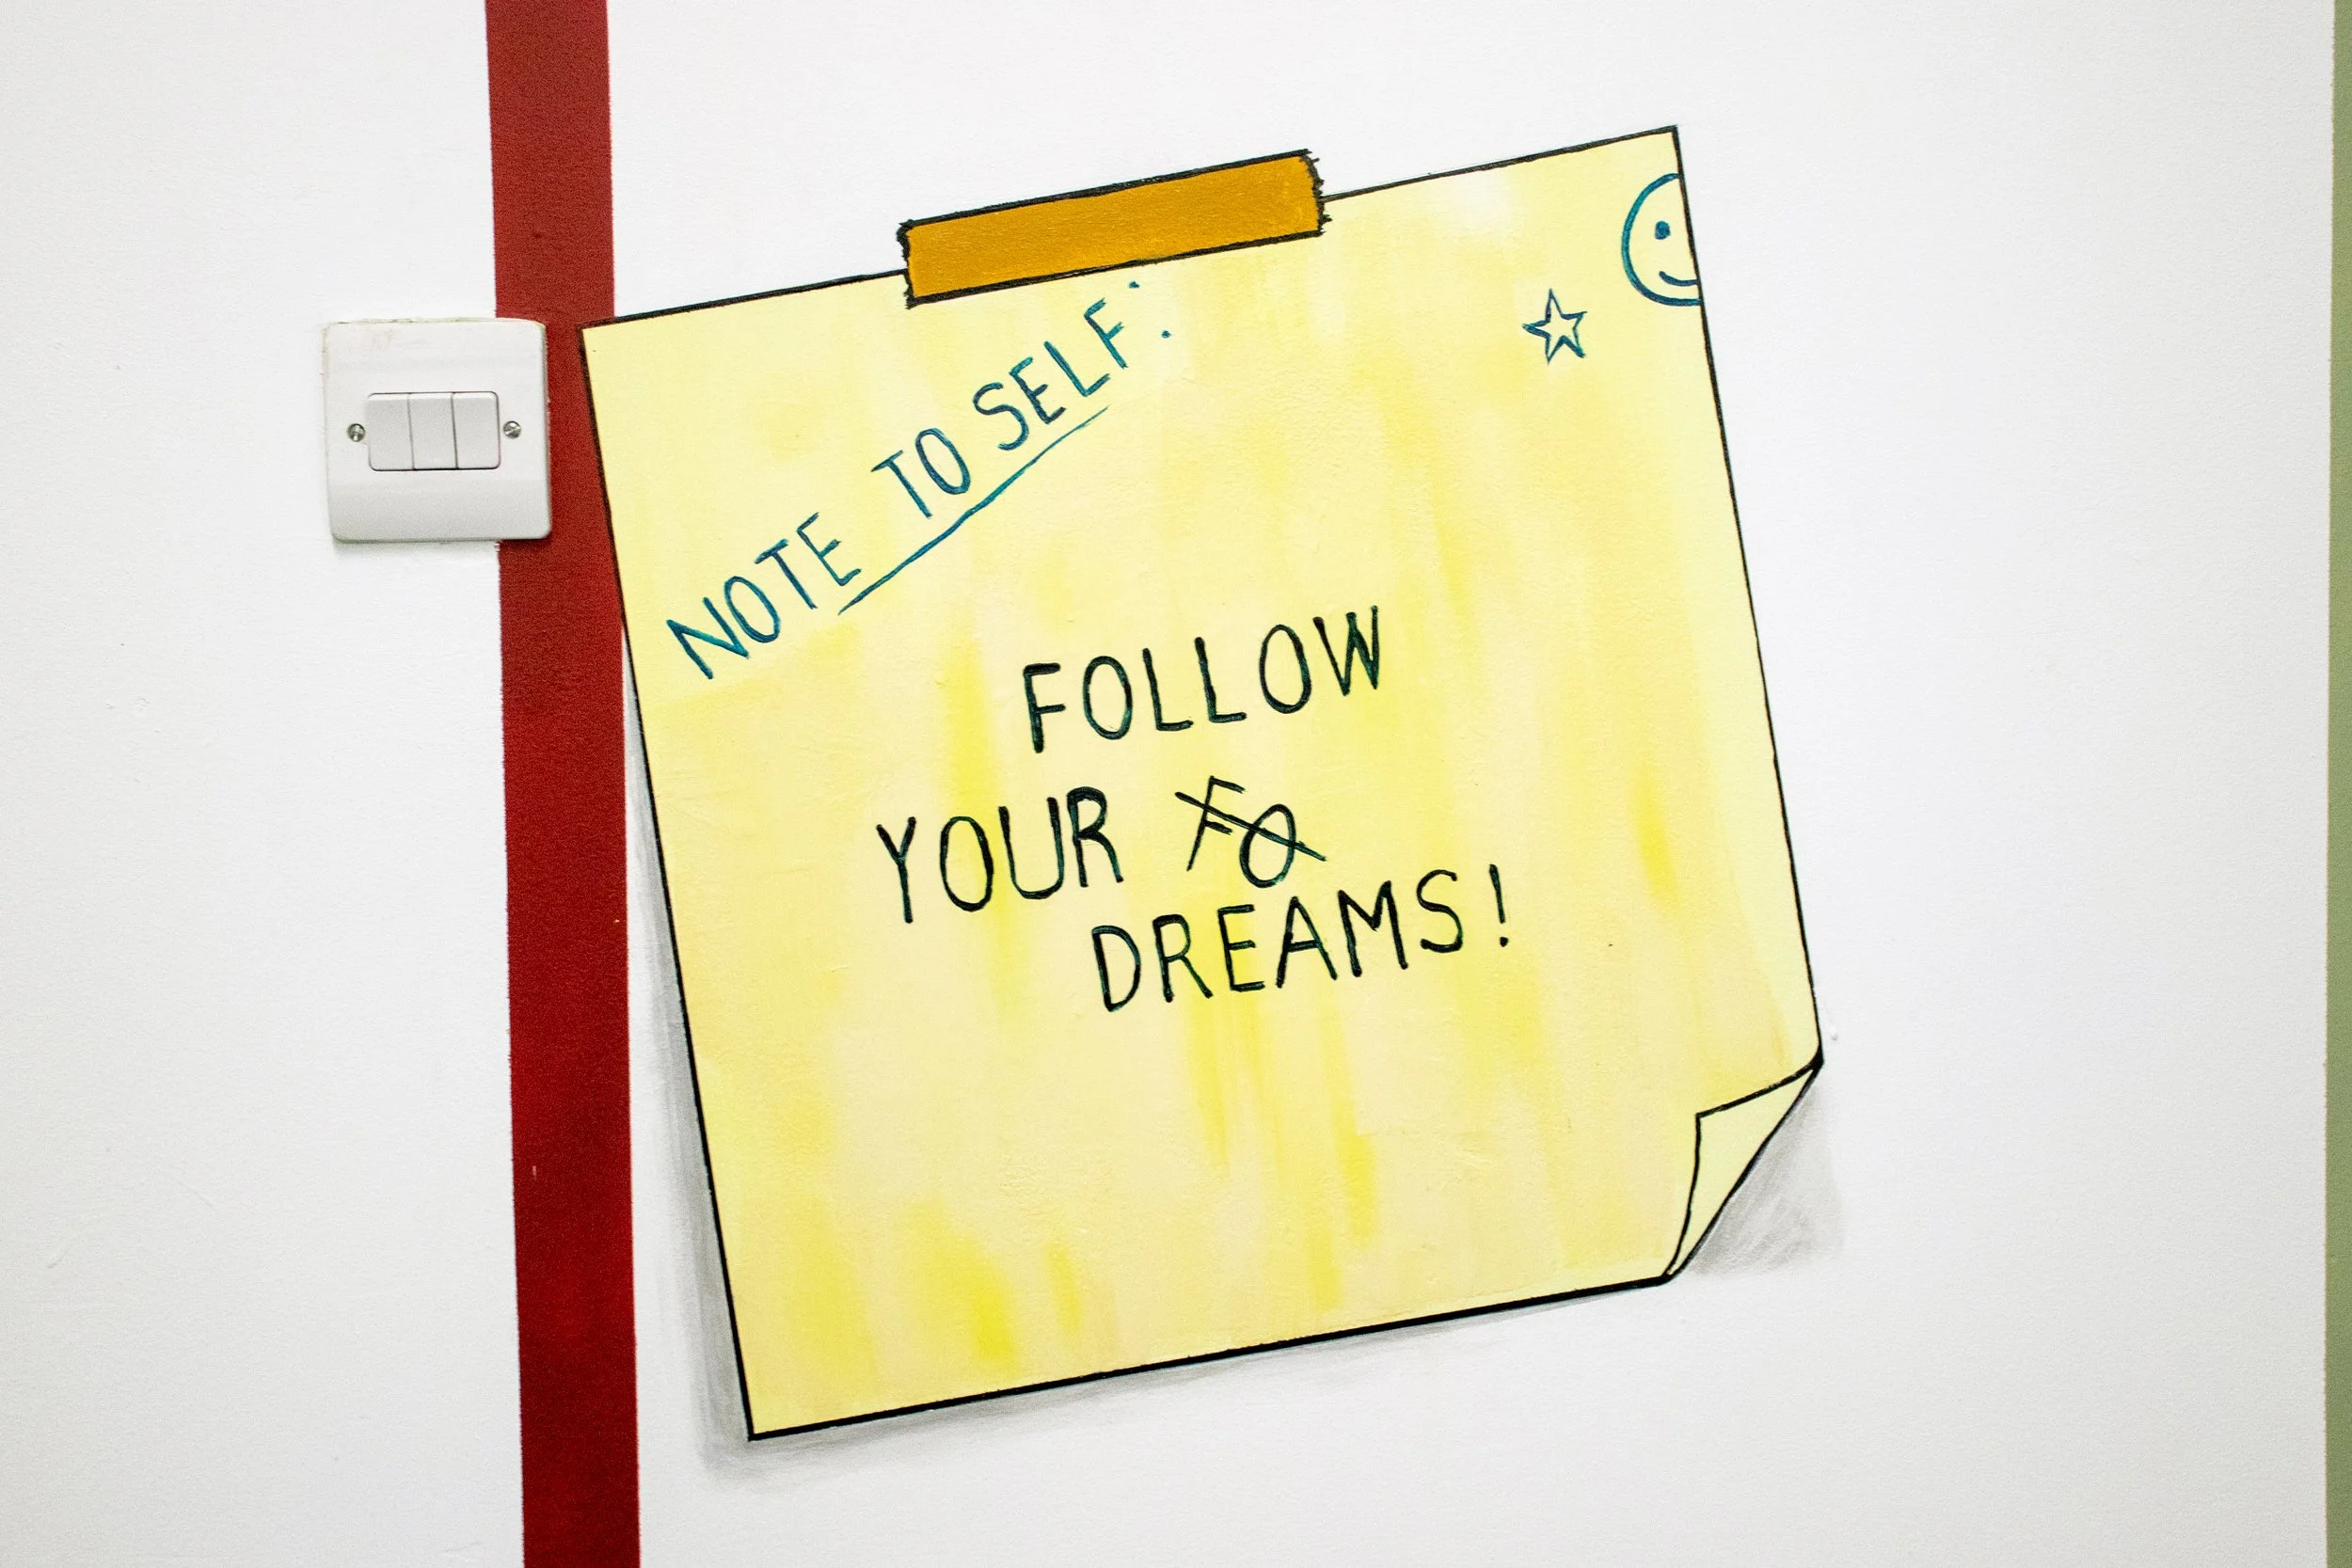 NOTE TO SELF:
FOLLOW
YOUR FO
DREAMS!